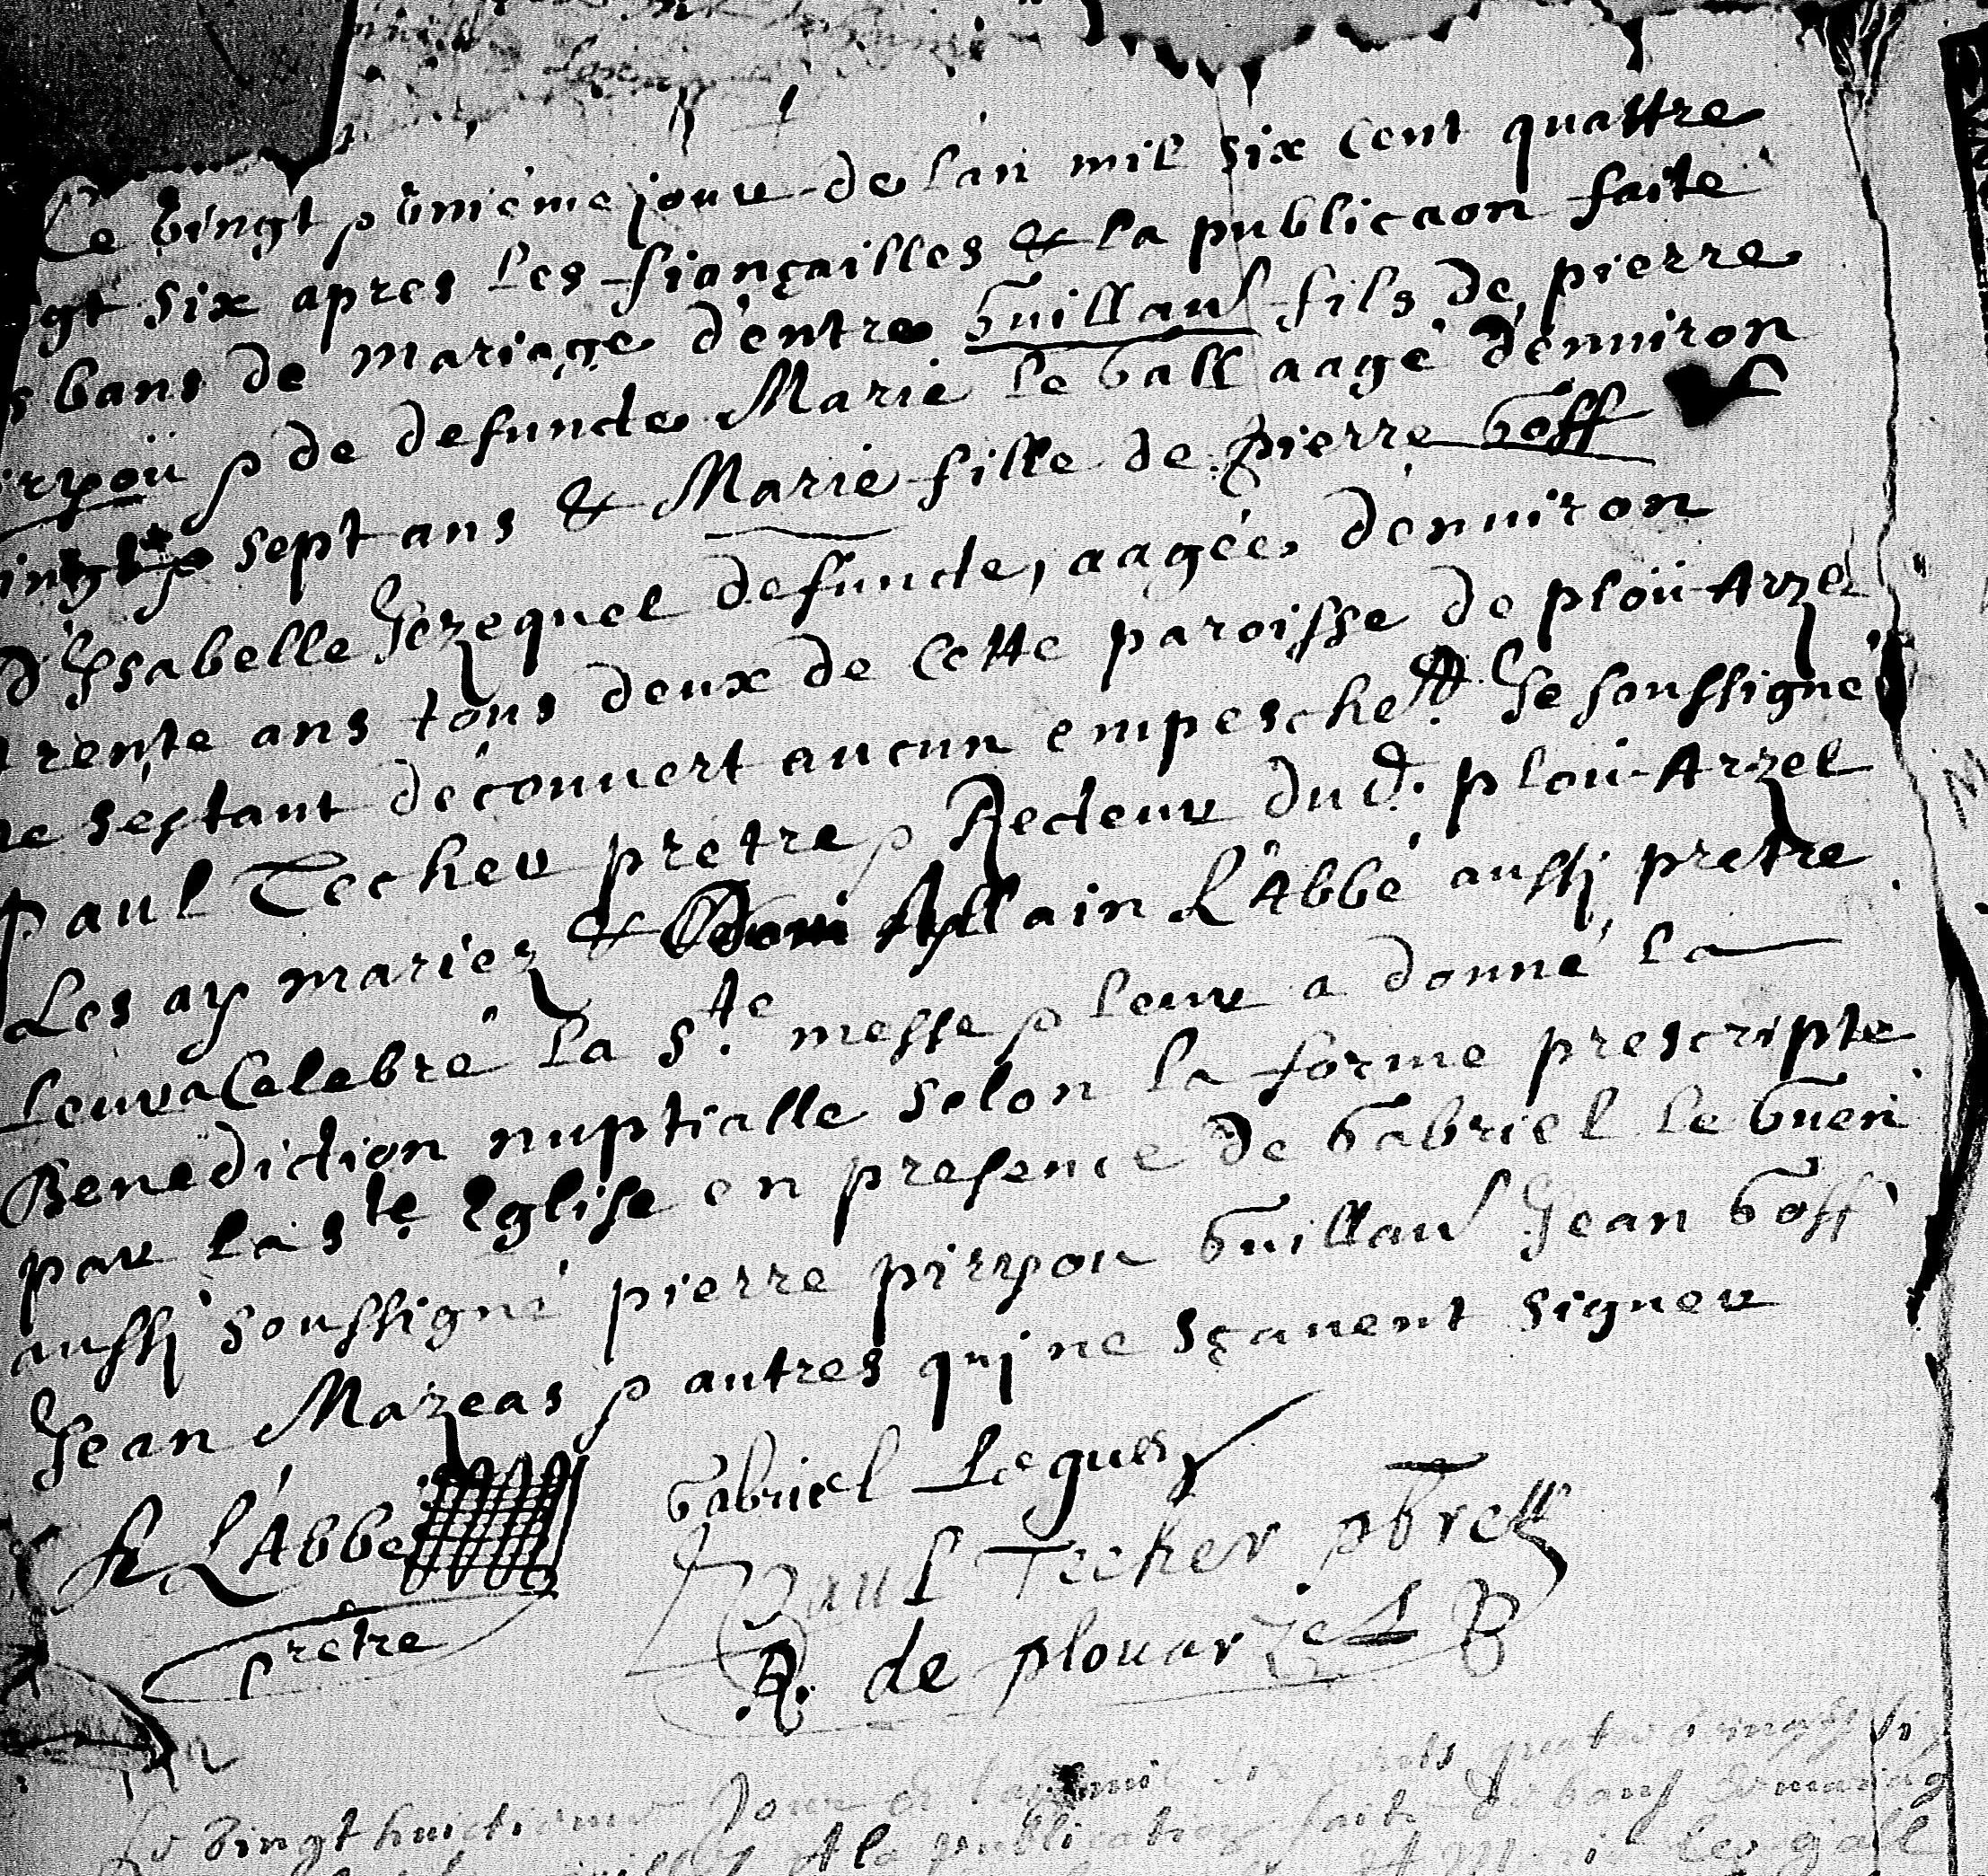 Ce vingt & üniéme jour de l'an mil six cent quattre
gt six apres les fiançailles & la publicaon faite
s bans de mariage d'entre Guillau fils de pierre
irrpoü & de defuncte Marie le Gall aagé d'enuiron
ingt & sept ans & Marie fille de pierre Goff
d'Ysabelle Jezequel defuncte, aagée d'enuiron
trente ans tous deux de cette paroisse de ploü-Arzel
ne s'estant découuert aucun empeschet. Je soussigné
Paul Techer prétre & Recteur dud. ploü-Arzel
Les ay mariez & Allain L'Abbé aussj pretre
leur a Celebré la ste. messe & leur a donné la
Benediction nuptialle selon la forme prescripte
par la ste. Eglise en presence de Gabriel le Guen
aussj soussigné pierre pirrpou Guillau Jean Goff
Jean Mazeas & autres quj ne sçauent signer
Gabriel Leguen
A L'Abbé
Paul Techer pbre
prétre
R. de plouarzel
Le vingt huictieme Jour de l'an mil six cents quatre vingts si
& la publication faite des bans de mariag
le gall